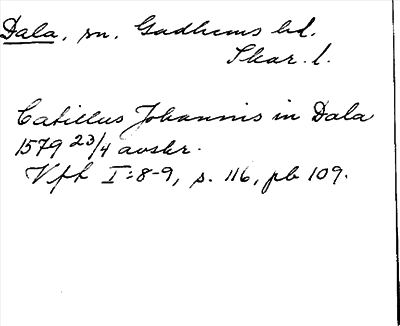 Dala, sn. Gudhems hd.
Skar. l.
Catillus Johannis in Dala
1579 23/4 avskr.
Vfk I:8-9, s. 116, pb 109.